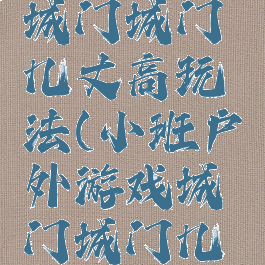 城门城门
几丈高玩
法(小班户
外游戏城
门城门几